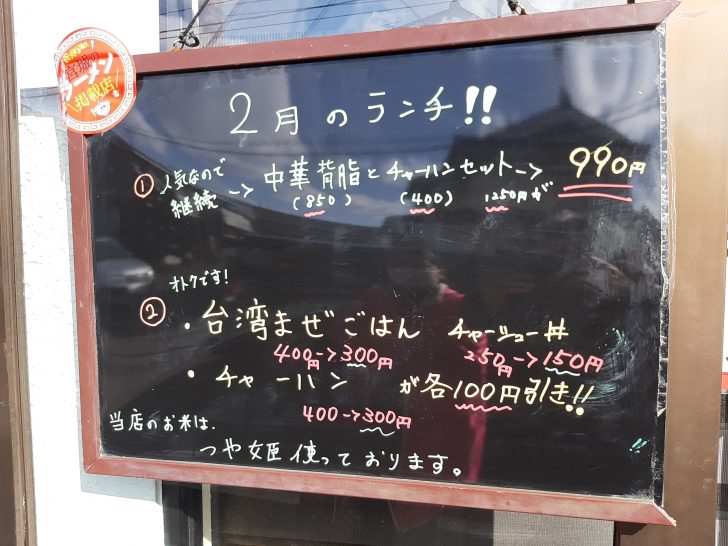 宮城の
ラーメン
掲載店!
2月のランチ!!
① 人気なので継続 -> 中華背脂とチャーハンセット-> 990円
(850) (400) 1250円が
オトクです!
② ・台湾まぜごはん チャーシュー丼
400円->300円 250円->150円
・チャーハン が各100円引き!!
400->300円
当店のお米は、
つや姫使っております。